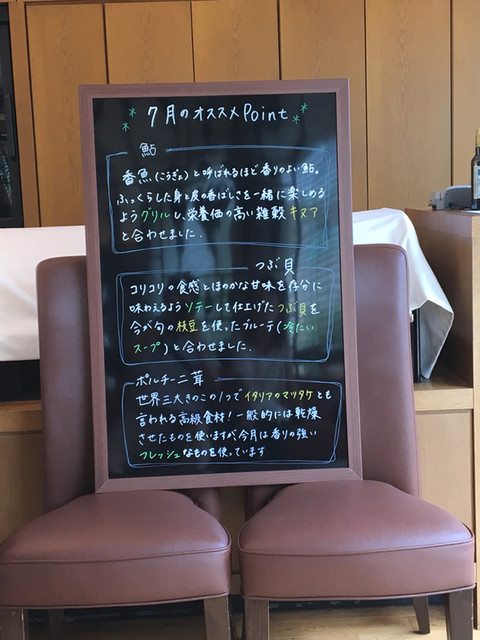 7月のオススメPoint
鮎
香魚(こうぎょ)と呼ばれるほど香りのよい鮎。
ふっくらした身と皮の香ばしさを一緒に楽しめる
ようグリルし、栄養価の高い雑穀キヌア
と合わせました。
つぶ貝
コリコリの食感とほのかな甘味を存分に
味わえるようソテーして仕上げたつぶ貝を
今が旬の枝豆を使ったブルーテ(冷たい
スープ)と合わせました。
ポルチーニ茸
世界三大きのこの1つでイタリアのマツタケとも
言われる高級食材!一般的には乾燥
させたものを使いますが今月は香りの強い
フレッシュなものを使っています